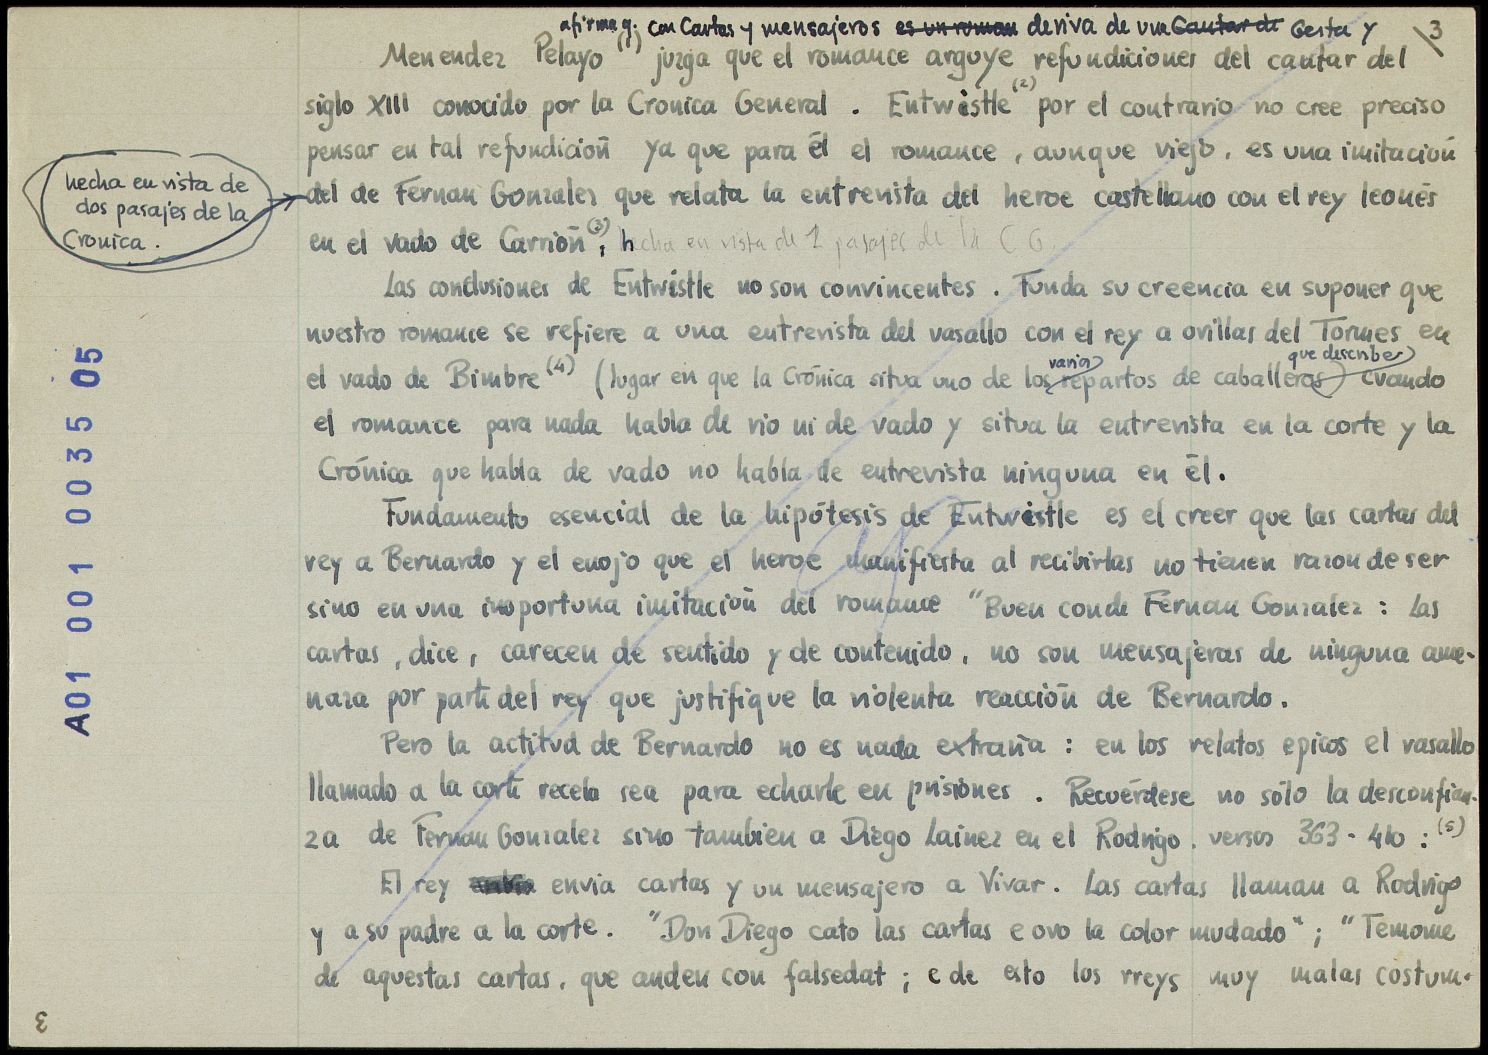 afirma q. con Cartas y mensajeros es un roman deriva de una Cantar de Gesta y
3
Menendez Pelayo (1) juzga que el romance arguye refundiciones del cantar del
siglo XIII conocido por la Cronica General . Entwistle (2) por el contrario no cree preciso
pensar en tal refundición ya que para él el romance , aunque viejo , es una imitación
hecha en vista de
dos pasajes de la
Cronica .
del de Fernan Gonzalez que relata la entrevista del heroe castellano con el rey leonés
en el vado de Carrión (3) ; hecha en vista de 2 pasajes de la C G.
Las conclusiones de Entwistle no son convincentes . Funda su creencia en suponer que
nuestro romance se refiere a una entrevista del vasallo con el rey a orillas del Tormes en
varios
que describe
el vado de Bimbre (4) (lugar en que la Crónica situa uno de los repartos de caballeros) cuando
el romance para nada habla de rio ni de vado y situa la entrevista en la corte y la
Crónica que habla de vado no habla de entrevista ninguna en él .
Fundamento esencial de la hipótesis de Entwistle es el creer que las cartas del
rey a Bernardo y el enojo que el heroe manifiesta al recibirlas no tienen razon de ser
sino en una inoportuna imitación del romance "Buen conde Fernan Gonzalez : Las
cartas , dice , carecen de sentido y de contenido , no son mensajeras de ninguna ame-
naza por parte del rey que justifique la violenta reacción de Bernardo .
Pero la actitud de Bernardo no es nada extraña : en los relatos epicos el vasallo
llamado a la corte recela sea para echarle en prisiones . Recuérdese no sólo la desconfian-
za de Fernan Gonzalez sino tambien a Diego Lainez en el Rodrigo . versos 363 - 410 : (5)
El rey envia cartas y un mensajero a Vivar . Las cartas llaman a Rodrigo
y a su padre a la corte . "Don Diego cato las cartas e ovo la color mudado" ; "Temome
de aquestas cartas , que anden con falsedat ; e de esto los rreys muy malas costum-
A01 001 0035 05
3